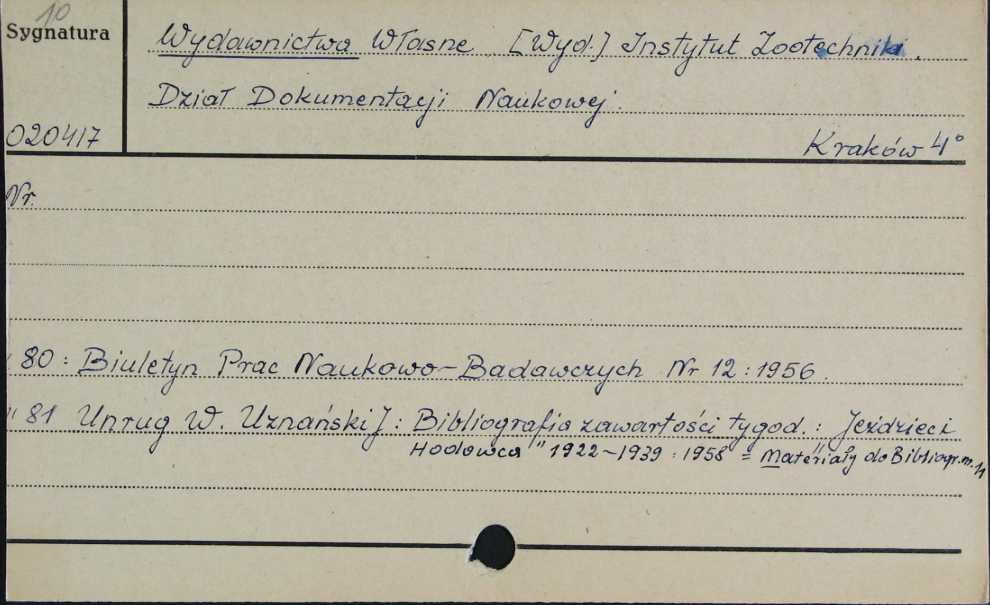 10
Sygnatura
Wydawnictwa Własne [Wyd.] Instytut Zootechniki.
Dział Dokumentacji Naukowej.
020417
Kraków 4°
Nr.
" 80 : Biuletyn Prac Naukowo-Badawczych Nr 12 : 1956.
" 81 Unrug W. Uznański J : Bibliografia zawartości tygod. : Jeździec i
Hodowca" 1922-1939 : 1958 = Materiały do Bibliogr. nr. 11